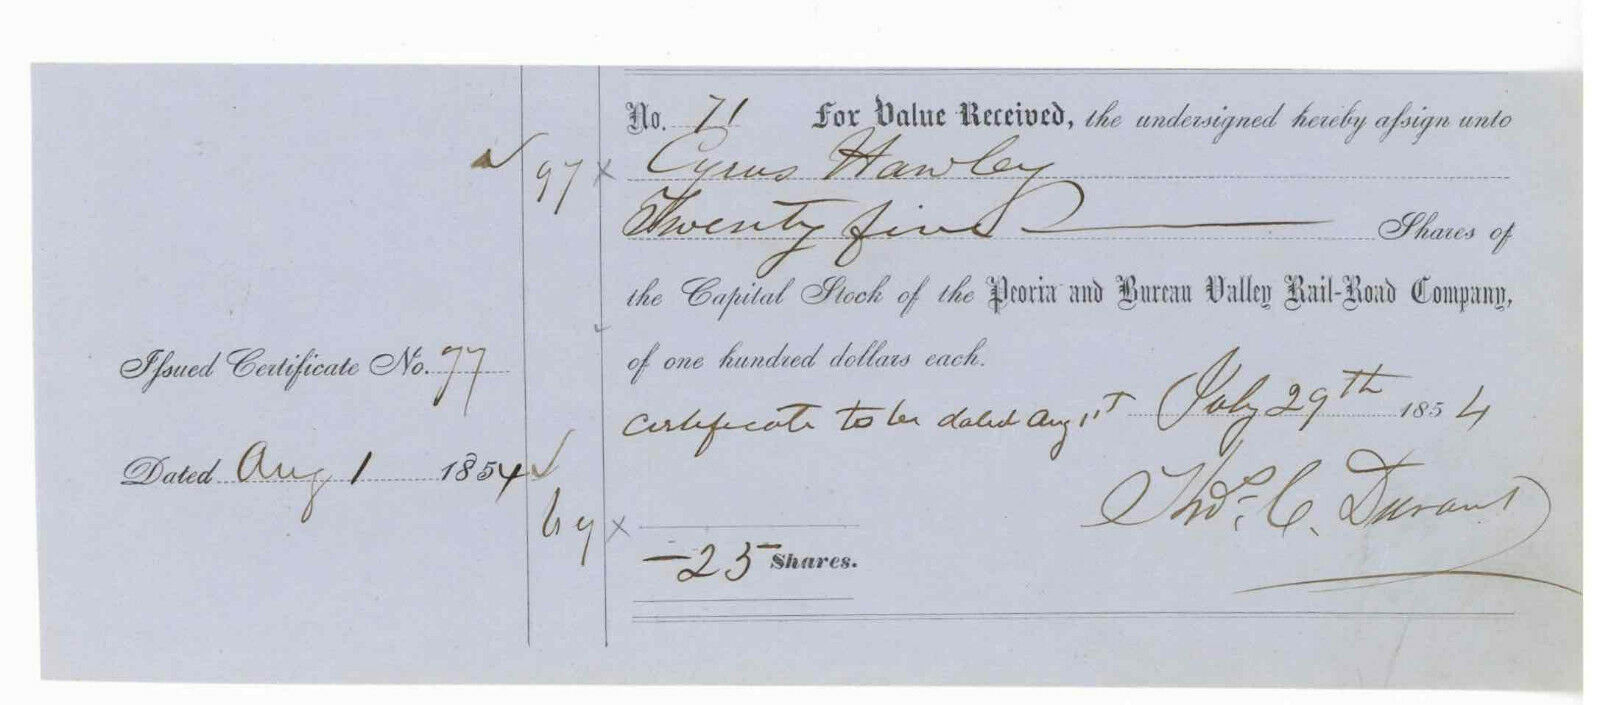 No. 71 For Value Received, the undersigned hereby assign unto
97 x Cyrus Hawley
Twenty five Shares of
the Capital Stock of the Peoria and Bureau Valley Rail-Road Company,
of one hundred dollars each.
Issued Certificate No. 77
certificate to be dated Aug 1st July 29th 1854
Dated Aug 1 1854
Thos. C. Durant
69 x
-25 Shares.